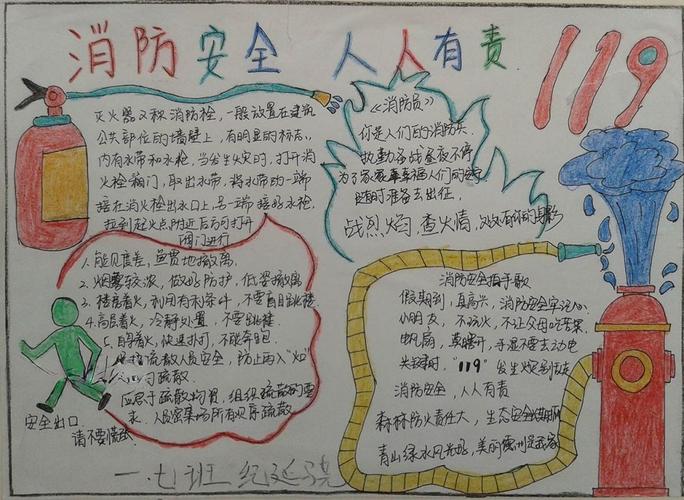 消防安全 人人有责
119
灭火器又称消防栓，一般放置在建筑
公共部位的墙壁上，有明显的标志，
内有水带和水枪，当发生火灾时，打开消
火栓箱门，取出水带，将水带的一端
接在消火栓出水口上，另一端接好水枪，
拉到起火点附近后方可打开
阀门进行
《消防员》
你是人们的消防兵
执勤备战昼夜不停
为了家庭幸福人们的
随时准备去出征，
战烈焰，查火情，
1.能见度差，鱼贯地撤离
2.烟雾较浓，做好防护，低姿撤离
3.楼层着火，利用有利条件，不要盲目跳楼
4.高层着火，冷静处置，不要跳楼
5.自身着火，快速扑打，不能奔跑
疏散人员安全，防止再入"火"
口可疏散
应急于疏散物资，组织疏散的要
求。人员密集场所有见序疏散
安全出口
请不要慌张
消防安全拍手歌
假期到，真高兴，消防安全牢记心
小朋友，不玩火，不让父母吃苦果
电风扇，真精开，手湿不要去动电
关键时，"119"发生火灾别
消防安全，人人有责
森林防火责任大，生态安全
青山绿水风光好，美丽
一.七班 纪延骁